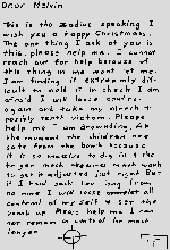 Dear Melvin
This is the Zodiac speaking I
wish you a happy Christmass.
The one thing I ask of you is
this, please help me. I cannot
reach out for help because of
this thing in me wont let me.
I am finding it extreamly dif
icult to hold it in check I am
afraid I will loose control
again and take my nineth +
posibly tenth victom. Please
help me I am drownding. At
the moment the children are
safe from the bomb because
it is so massive to dig in & the
triger mech requires much work
to get it adjusted just right. But
if I hold back too long from
no nine I will loose all
control of my self & set the
bomb up. Please help me I can
not remain in control for much
longer.